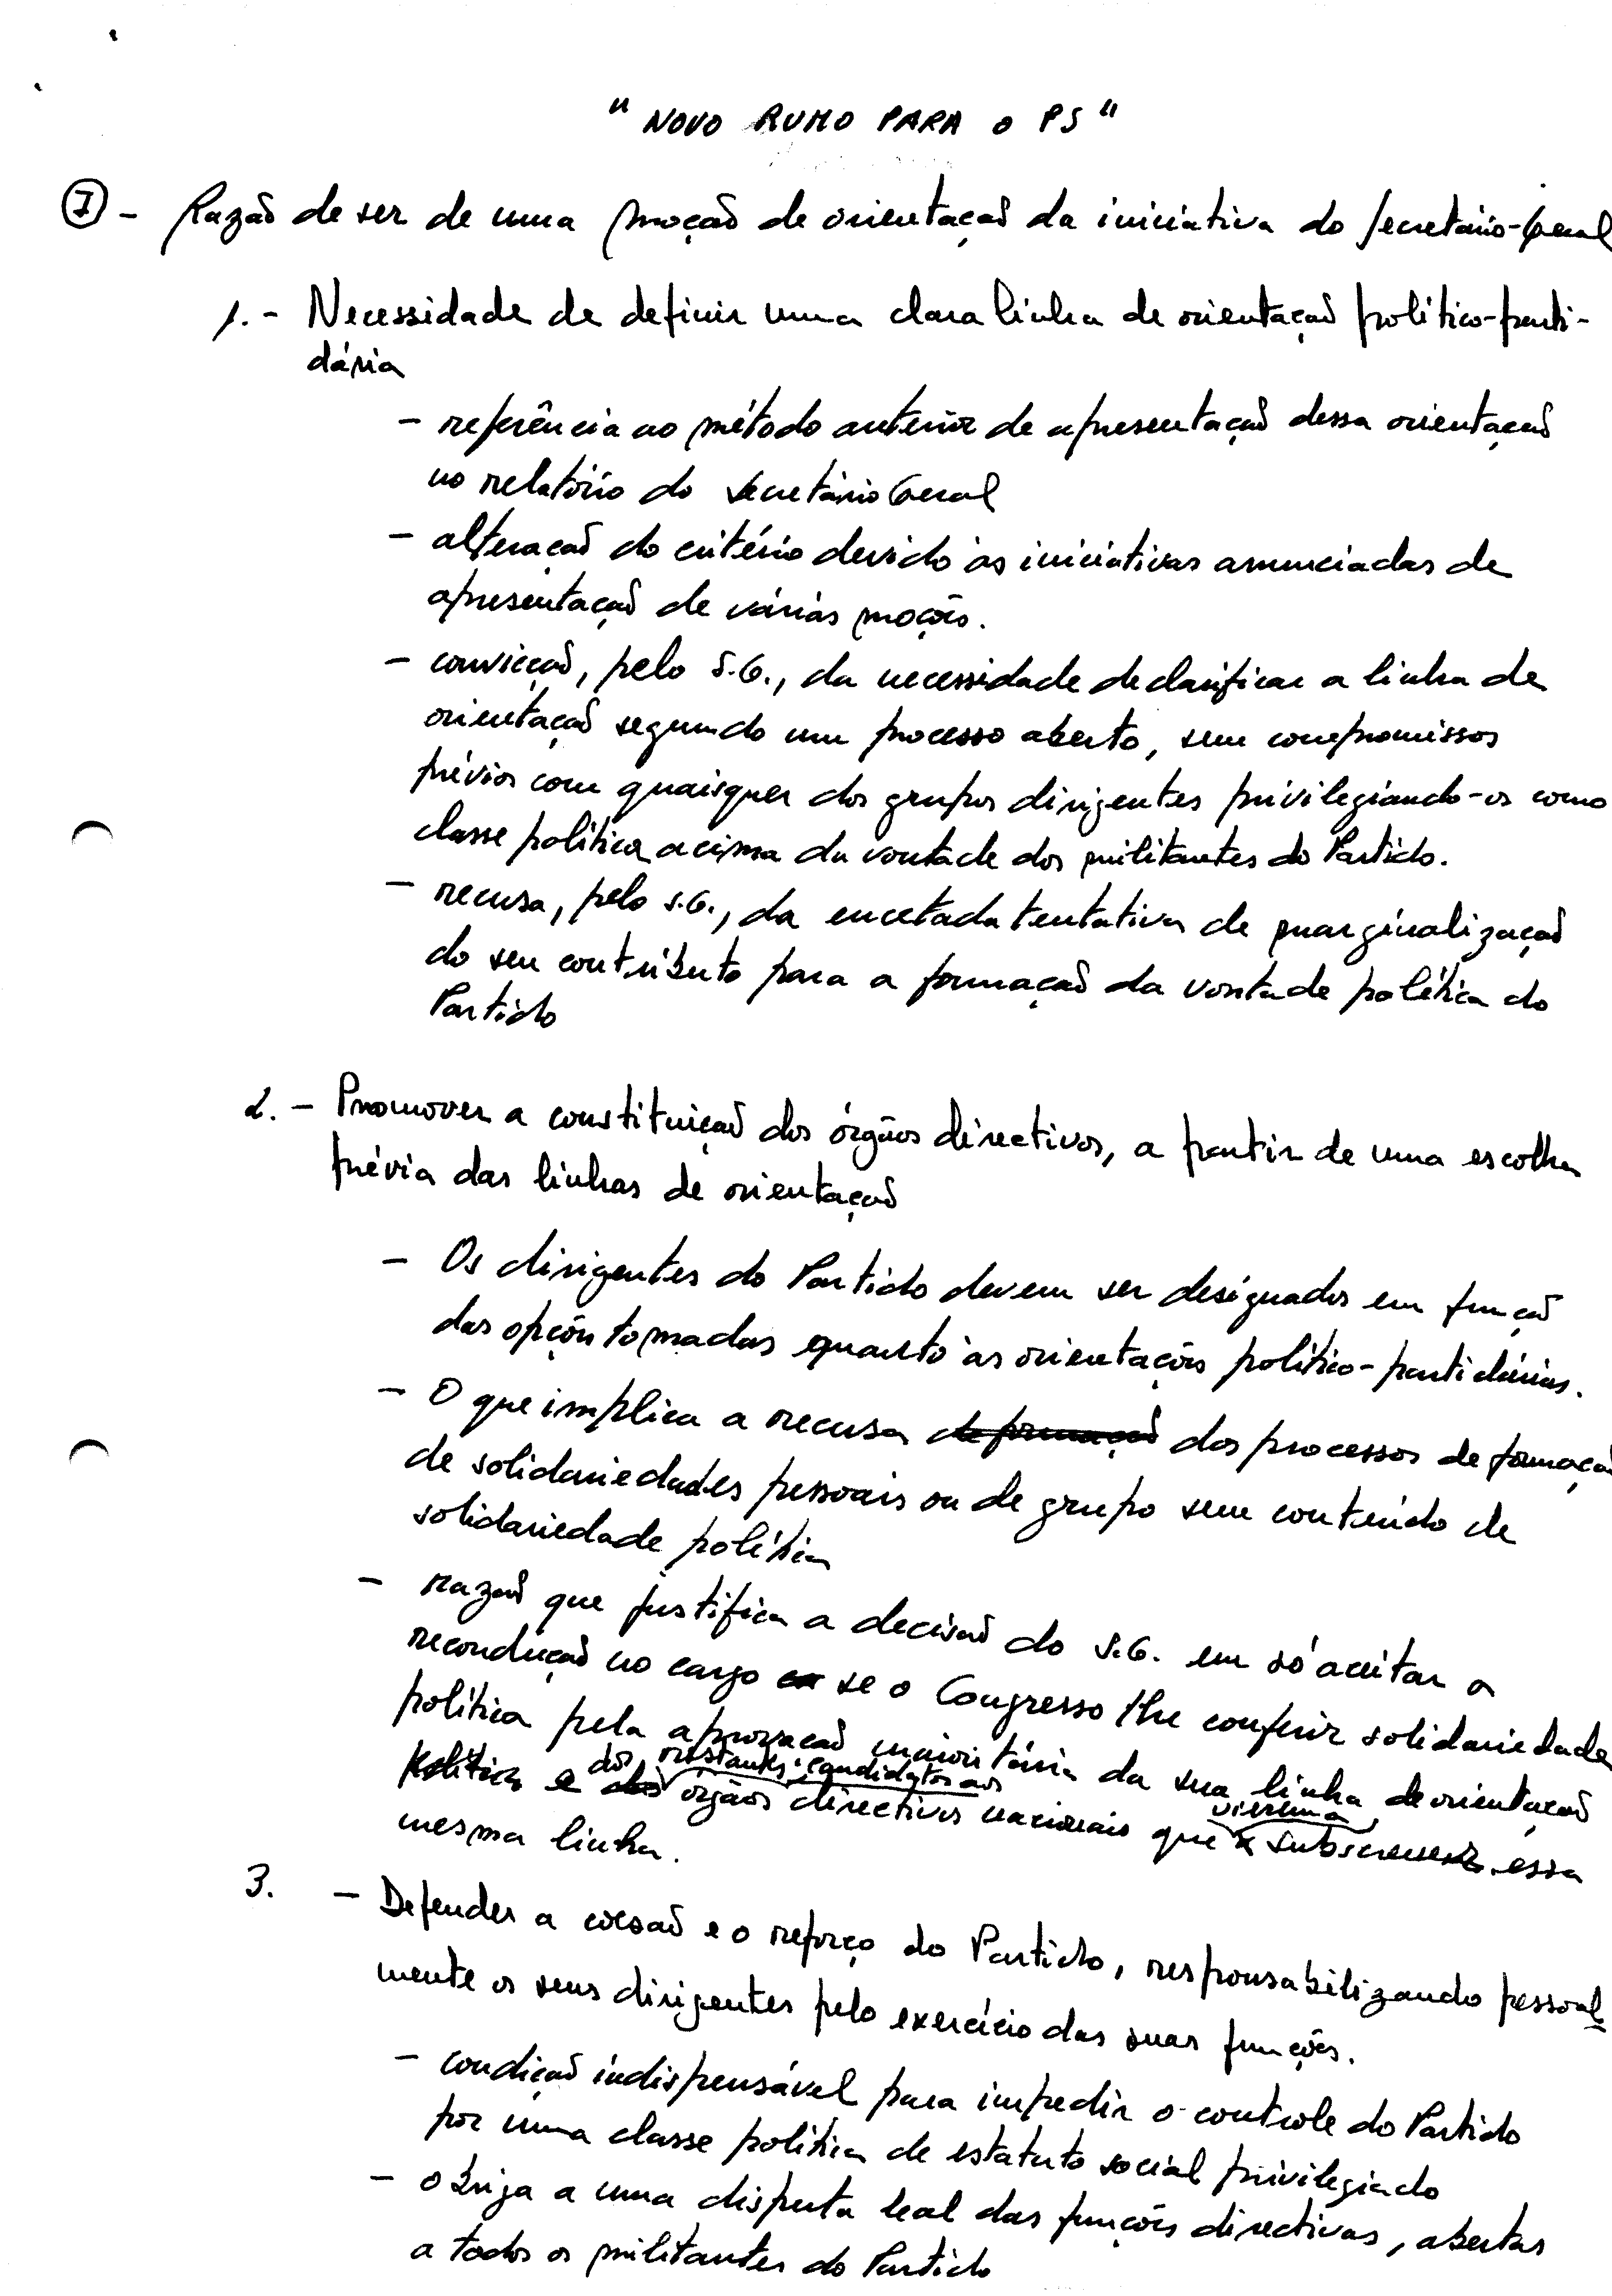 "NOVO RUMO PARA O PS"
I - Razão de ser de uma moção de orientação da iniciativa do Secretário-Geral
1. - Necessidade de definir uma clara linha de orientação político-parti-
dária
- referência ao método anterior de apresentação dessa orientação
no relatório do Secretário Geral
- alteração do critério devido às iniciativas anunciadas de
apresentação de várias moções.
- convicção, pelo S.G., da necessidade de clarificar a linha de
orientação segundo um processo aberto, sem compromissos
prévios com quaisquer dos grupos dirigentes privilegiando-os como
classe política acima da vontade dos militantes do Partido.
- recusa, pelo S.G., da encetada tentativa de marginalização
do seu contributo para a formação da vontade política do
Partido
2. - Promover a constituição dos órgãos directivos, a partir de uma escolha
prévia das linhas de orientação
- Os dirigentes do Partido devem ser designados em função
das opções tomadas quanto às orientações político-partidárias.
- O que implica a recusa de formação dos processos de formação
de solidariedades pessoais ou de grupo sem conteúdo de
solidariedade política
- razão que justifica a decisão do S.G. em só aceitar a
recondução no cargo se o Congresso lhe conferir solidariedade
política pela aprovação maioritária da sua linha de orientação
dos restantes candidatos aos
política e órgãos directivos nacionais que subscrever essa
mesma linha.
3. - Defender a coesão e o reforço do Partido, responsabilizando pessoal
mente os seus dirigentes pelo exercício das suas funções.
- condição indispensável para impedir o controle do Partido
por uma classe política de estatuto social privilegiado
- obriga a uma disputa leal das funções directivas, abertas
a todos os militantes do Partido